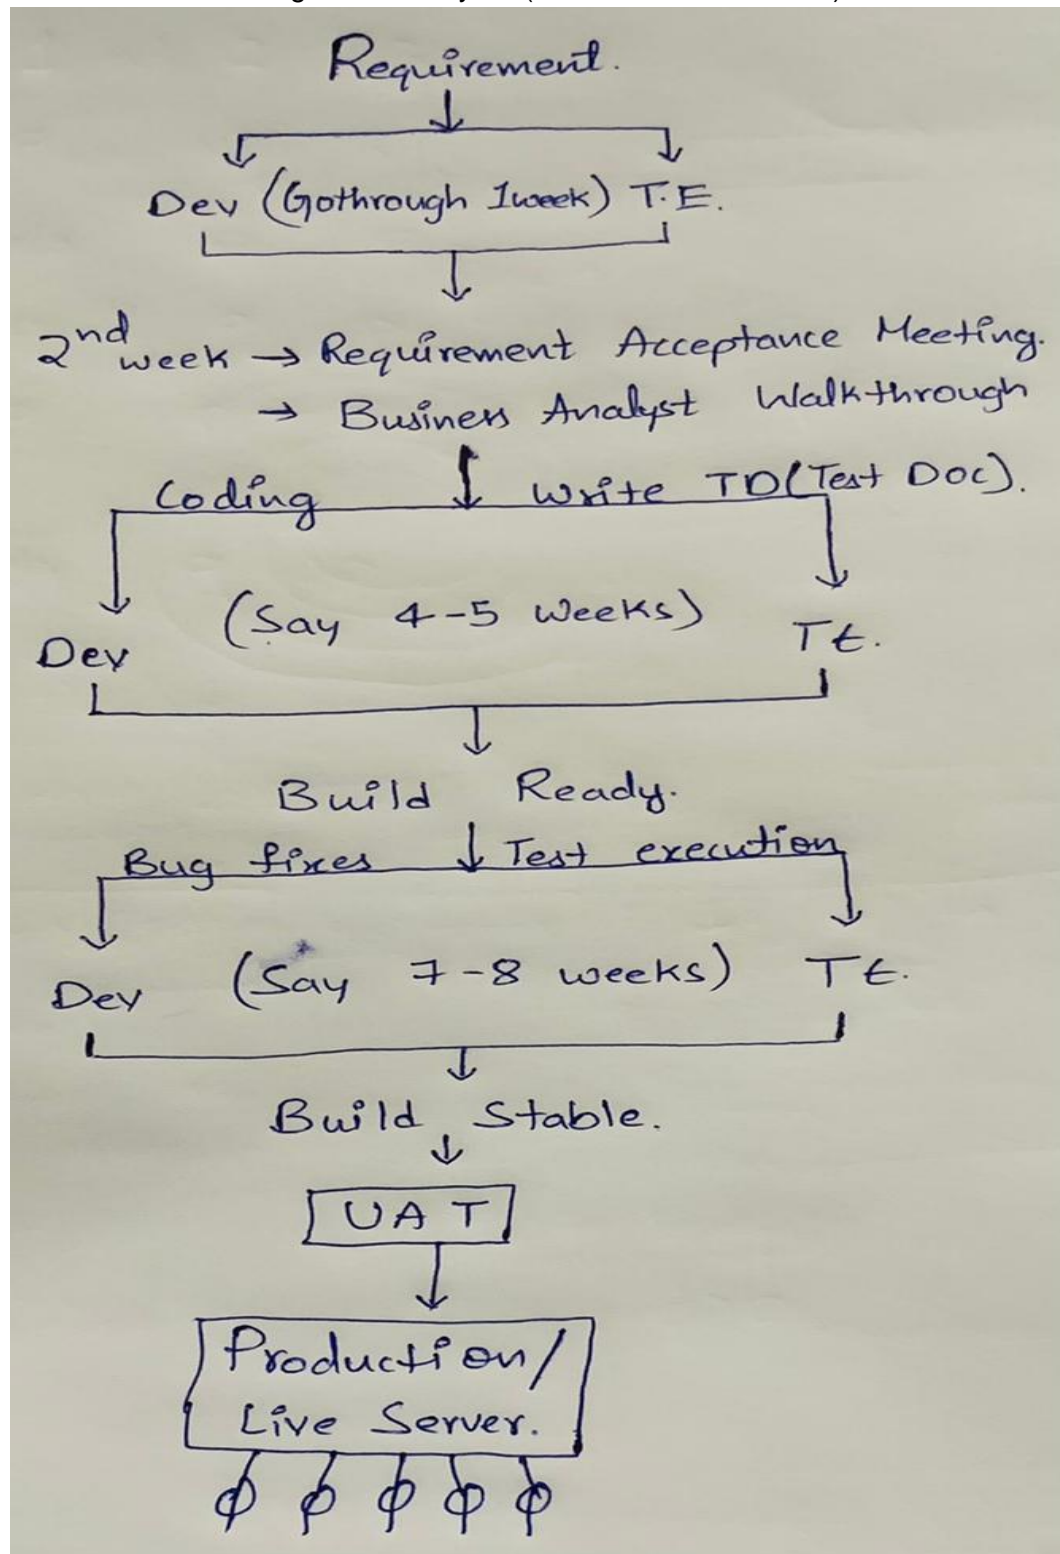 Requirement.
Dev (Gothrough 1week) T.E.
2nd week → Requirement Acceptance Meeting.
→ Business Analyst Walkthrough
Coding Write TD(Test Doc).
(Say 4-5 weeks)
Dev TE.
Build Ready.
Bug fixes Test execution
Dev (Say 7-8 weeks) TE.
Build Stable.
UAT
Production/
Live Server.